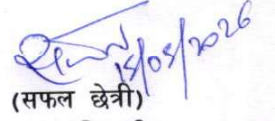 15/05/2026
(सफल छेत्री)